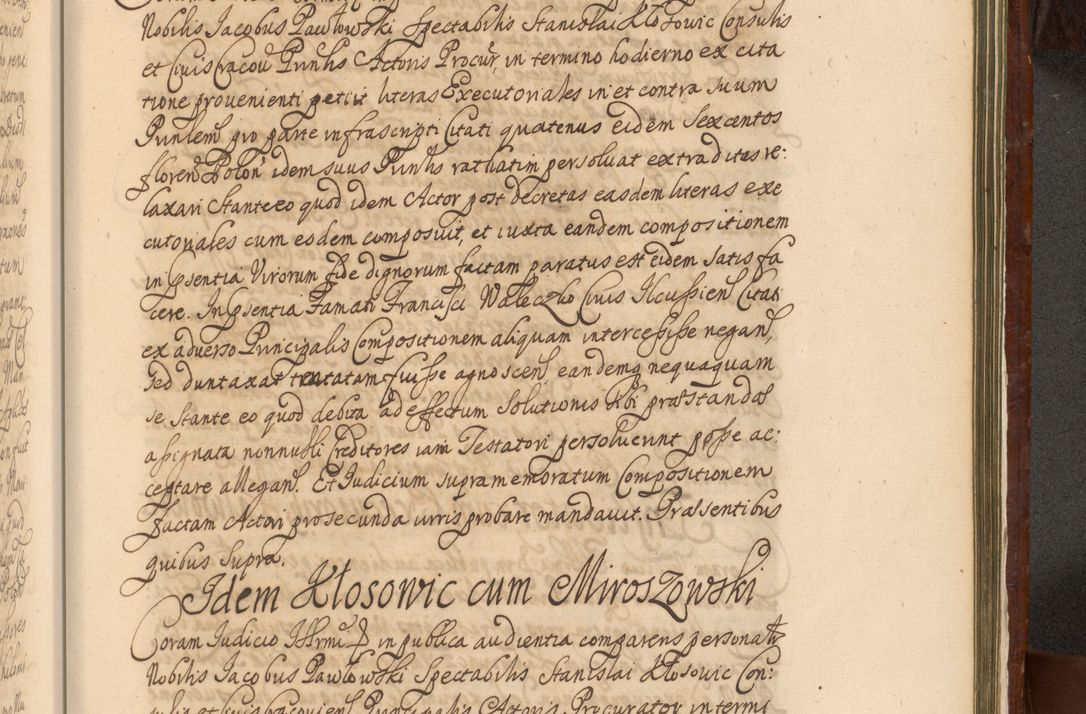 Nobilis Jacobus Pawłowski Spectabilis Stanislai Kłosowic Consulis
et Civis Cracou Prinlis Actoris Procur, in termino hodierno ex cita
tione provenienti petiit literas Executoriales in et contra suum
Prinlem pro parte infrascripti Citati quatenus eidem Sexcentos
floren Polon idem suus Prinlis rathatim persoluat extraditas re:
laxari Stante eo quod idem Actor post decretas easdem literas exe
cutoriales cum eodem composuit, et iuxta eandem compositionem
in psentia Virorum fide dignorum factam paratus est eidem satis fa
cere. In psentia Famati Francisci Waleczko Civis Ilcussien Citati
ex adverso Principalis Compositionem aliquam intercessisse negans
sed duntaxat tentatam fuisse agnoscens eandemq nequaquam
se stante eo quod debita ad effectum Solutionis sibi præstandæ
assignata nonnulli Creditores iam Testatori persoluerunt posse ac:
ceptare allegans. Et Judicium supramemoratum Compositionem
factam Actori pro secunda iuris probare mandavit. Præsentibus
quibus supra.
Idem Kłosowic cum Miroszowski
Coram Judicio Illrmi D in publica audientia comparens personalr
Nobilis Jacobus Pawłowski Spectabilis Stanislai Kłosowic Con:
sulis et Civis Cracovien Principalis Actoris Procurator in termi